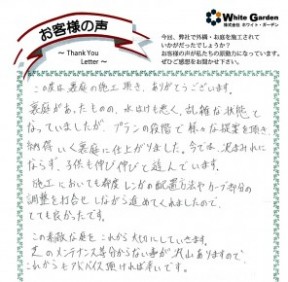 お客様の声
～ Thank You
Letter ～
White Garden
株式会社 ホワイト・ガーデン
今回、弊社で外構・お庭を施工されて
いかがだったでしょうか？
お客様の声が私たちの原動力になっています。
ぜひご感想をお聞かせ下さい。
この度は裏庭の施工 頂き、ありがとうございます。
裏庭があったものの、水はけも悪く、乱雑な状態と
なっていましたが、プランの段階で様々な提案を頂き
納得いく裏庭に仕上がりました。今では、泥まみれに
ならず、子供も伸び伸びと遊んでいます。
施工においても都度 レンガの配置方法やカーブ部分の
調整を打合せしながら進めてくれましたので、
とても良かったです。
この素敵な庭を これから大切にしていきます。
芝のメンテナンス等分からない事が沢山ありますので、
これからもアドバイス頂ければ幸いです。